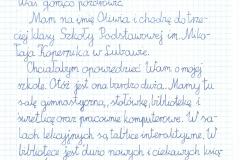 Was gorąco pozdrawiać.
Mam na imię Oliwia i chodzę do trze-
ciej klasy Szkoły Podstawowej im. Miko-
łaja Kopernika w
Chciałabym opowiedzieć Wam o mojej
szkole. Otóż jest ona bardzo duża. Mamy tu
salę gimnastyczną, stołówkę, bibliotekę i
świetlicę oraz pracownię komputerową. W sa-
lach lekcyjnych są tablice interaktywne. W
bibliotece jest dużo nowych i ciekawych ksią-